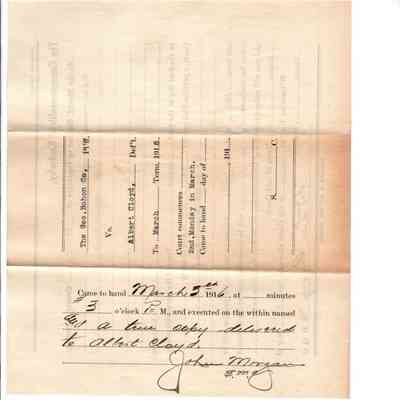 The Geo. Hohon Co, Plff.
Vs.
Albert Cloyd, Def't.
To March Term, 1916.
Court commences
2nd. Monday in March.
Came to hand day of
191
S. C.
Came to hand March 3rd 1916, at minutes
3 o'clock P. M., and executed on the within named
By a true copy delivered
to Albert Cloyd.
John Morgan